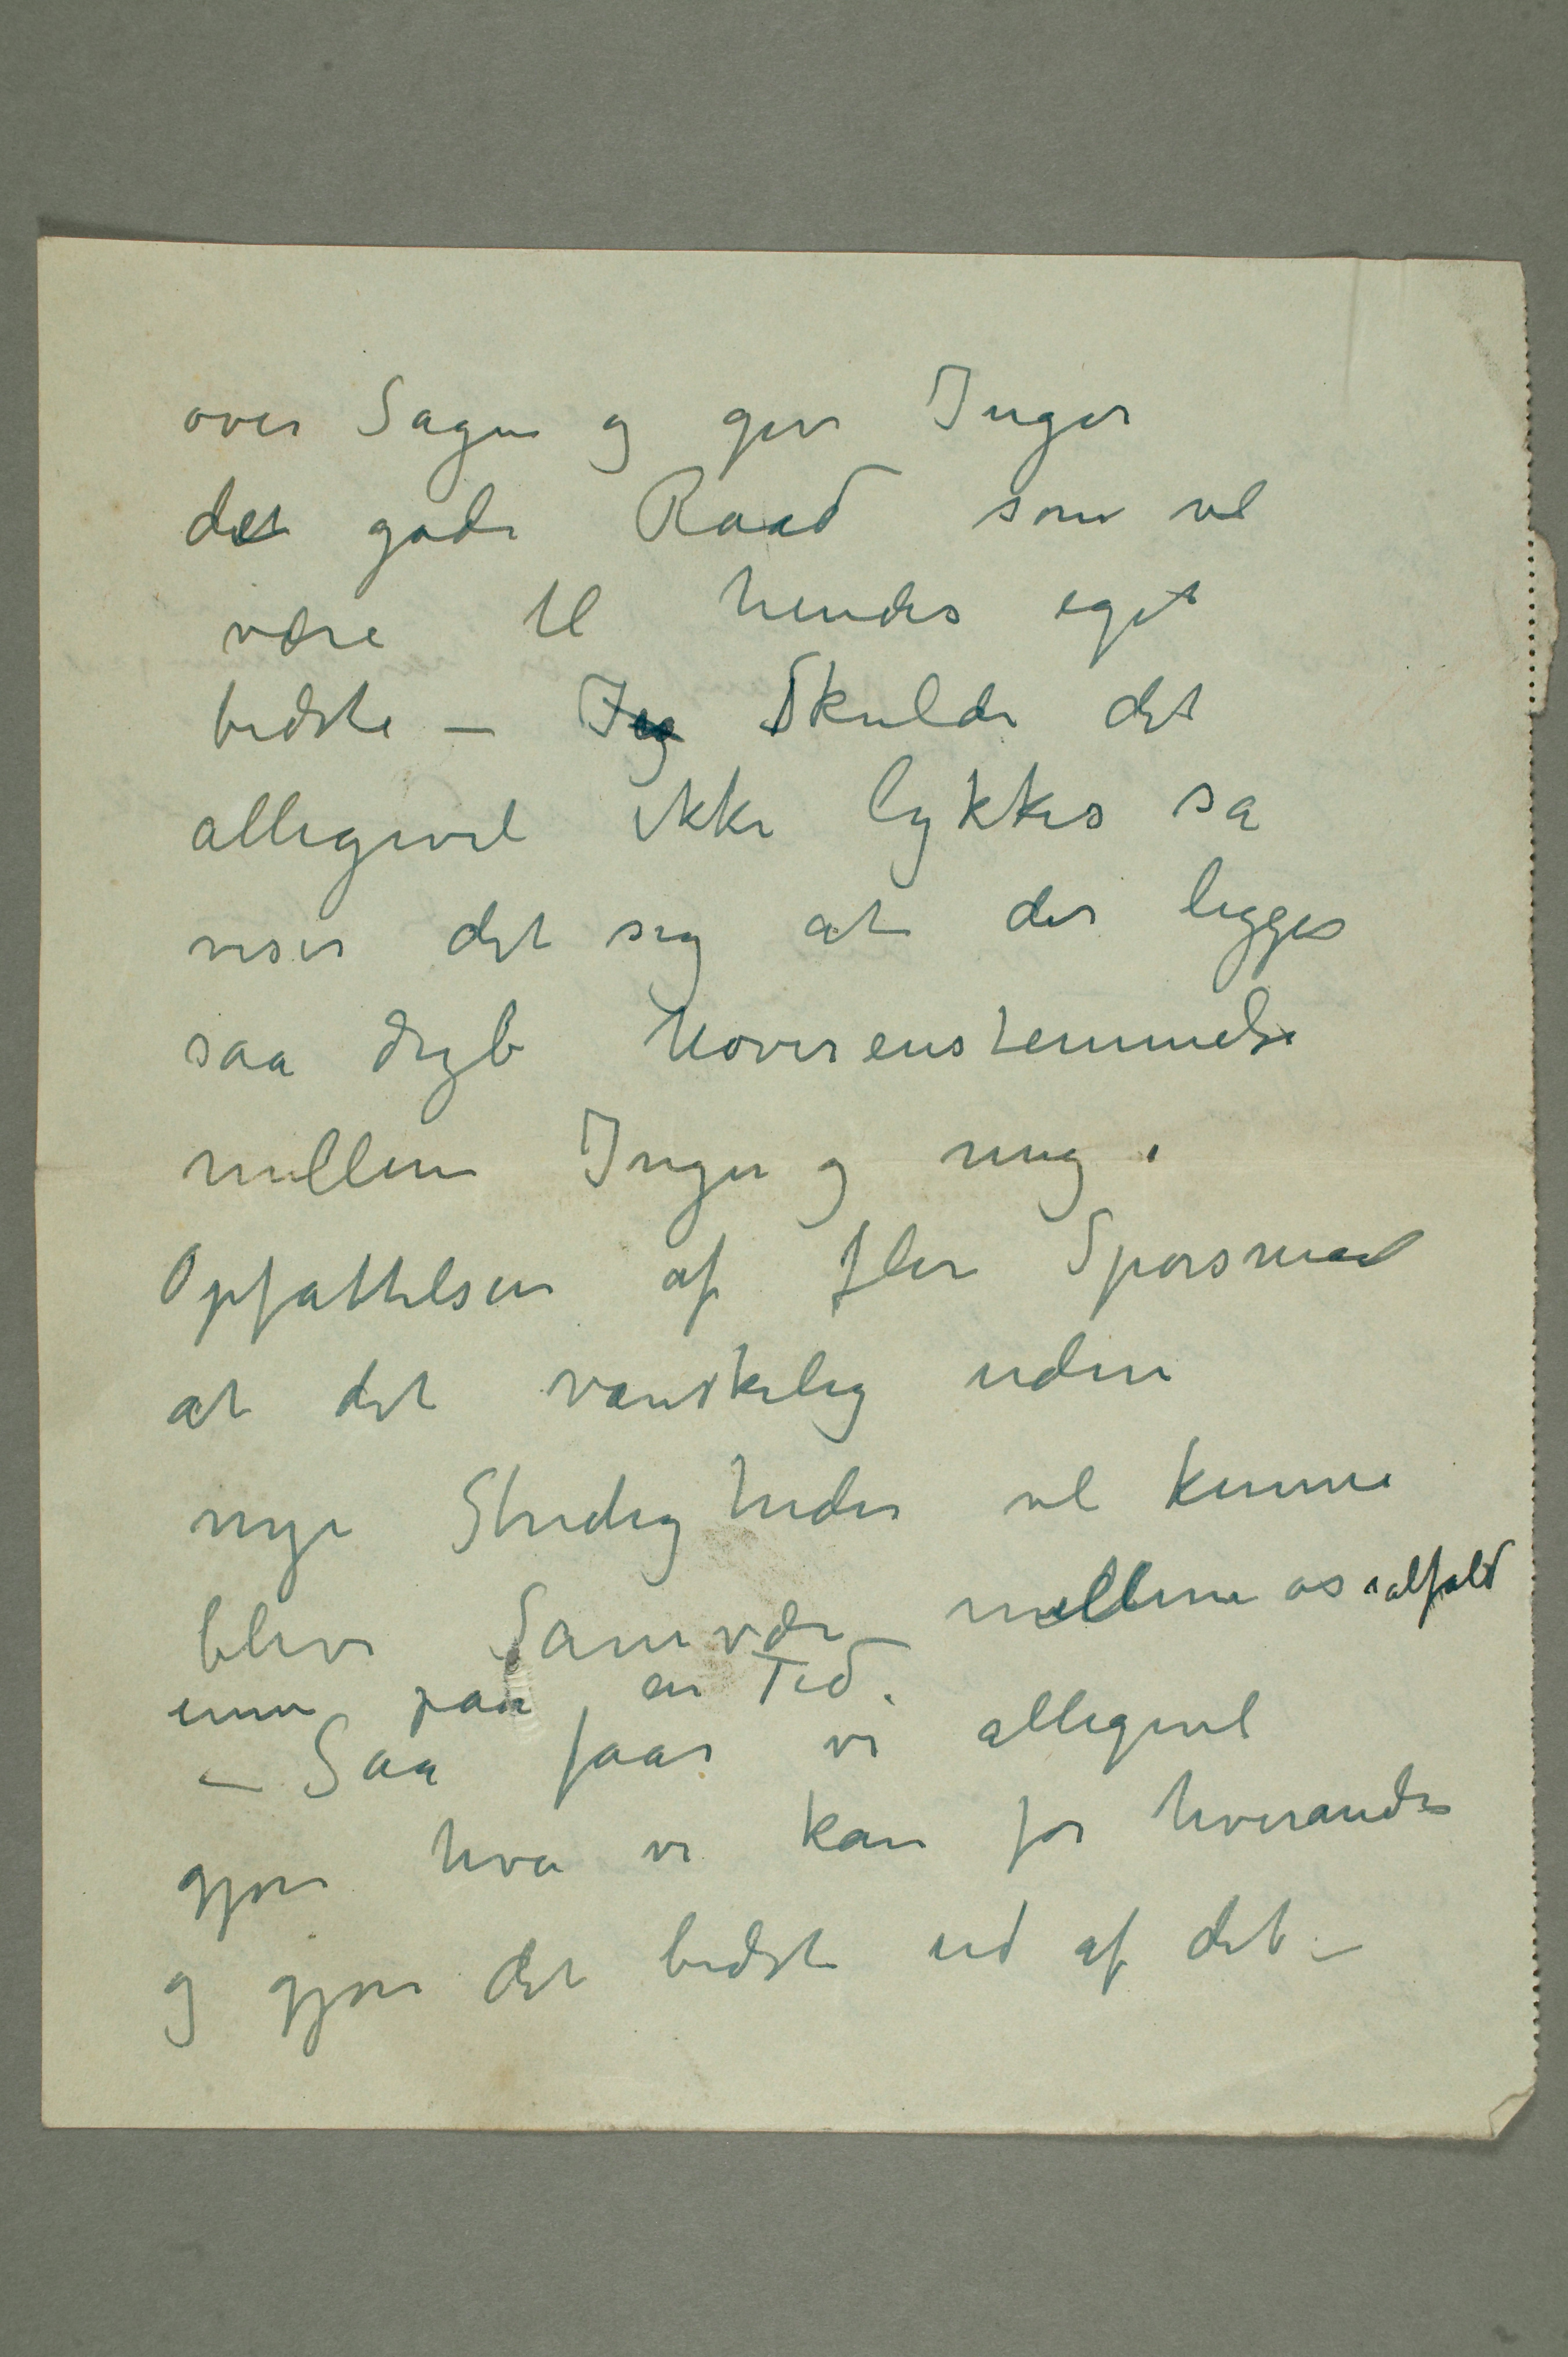 over Sagen og give Inger
det gode Raad som vil
være til hendes eget
bedste – Jeg Skulde det
alligevel ikke lykkes sa
viser det sig at der ligges
saa dyb Uoverenstemmelse
mellem Inger og mig i
Opfattelsen af flere Spørsmaal
at det vanskelig uden
nye Stridigheder vil kunne
blive Samvær mellem os ialfald
ennu paa en Tid.
– Saa faar vi alligevel
gjøre hva vi kan for hverandre
og gjøre det bedste ud af det –